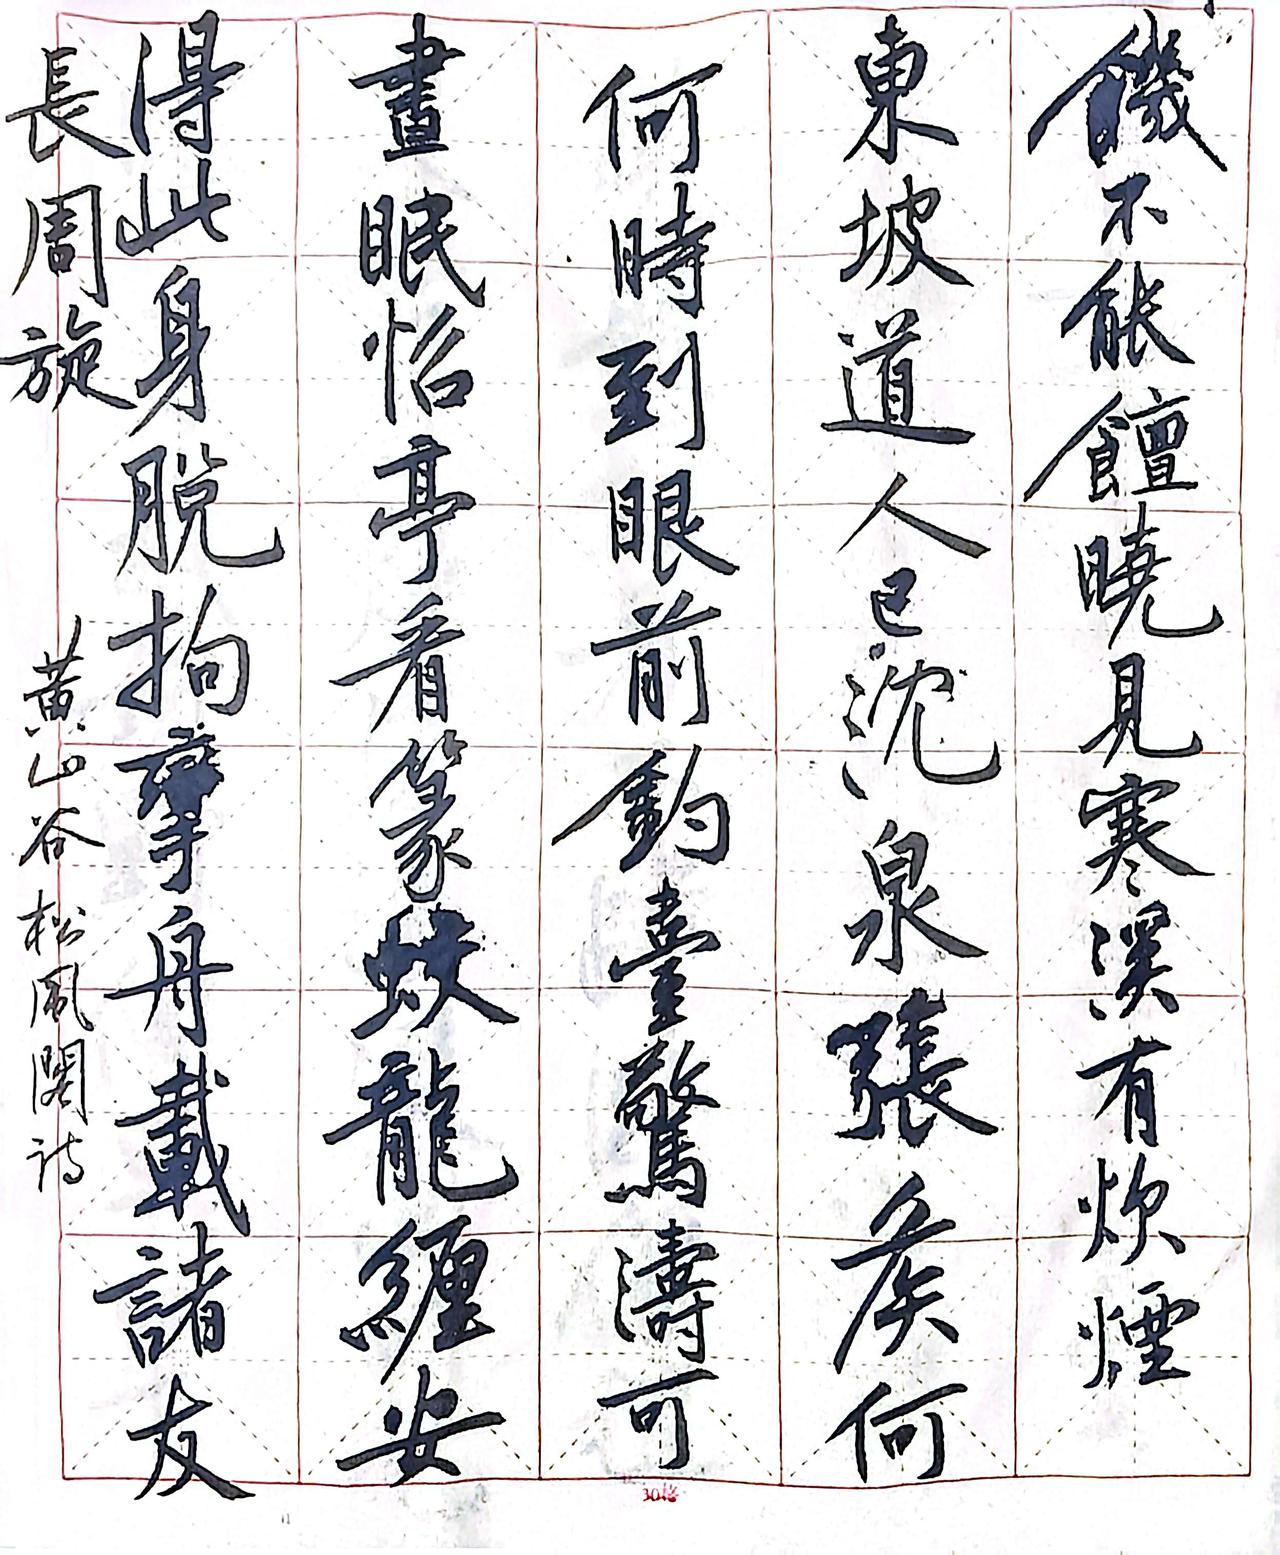 饑不能饘曉見寒溪有炊煙
東坡道人已沈泉張矦何
何時到眼前釣臺驚濤可
晝眠怡亭看篆蛟龍纏安
得此身脫拘攣舟載諸友
長周旋
黃山谷松風閣詩
30格